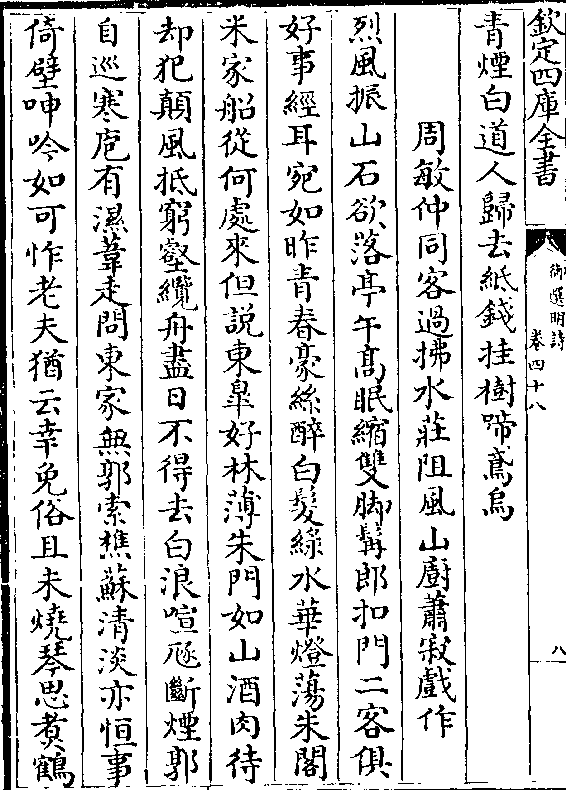 欽定四庫全書
御選明詩
卷四十八
八
青煙白道人歸去紙錢挂樹啼鳶烏
周敏仲同客過拂水莊阻風山廚蕭寂戲作
烈風振山石欲落亭午高眠縮雙脚髯郎扣門二客俱
好事經耳宛如昨青春豪絲醉白髮綠水華燈蕩朱閣
米家船從何處來但說東臯好林薄朱門如山酒肉待
却犯顛風抵窮壑纜舟盡日不得去白浪喧豗斷煙郭
自巡寒庖有濕葦走問東家無郭索樵蘇清淡亦恒事
倚壁呻吟如可怍老夫猶云幸免俗且未燒琴思煑鶴